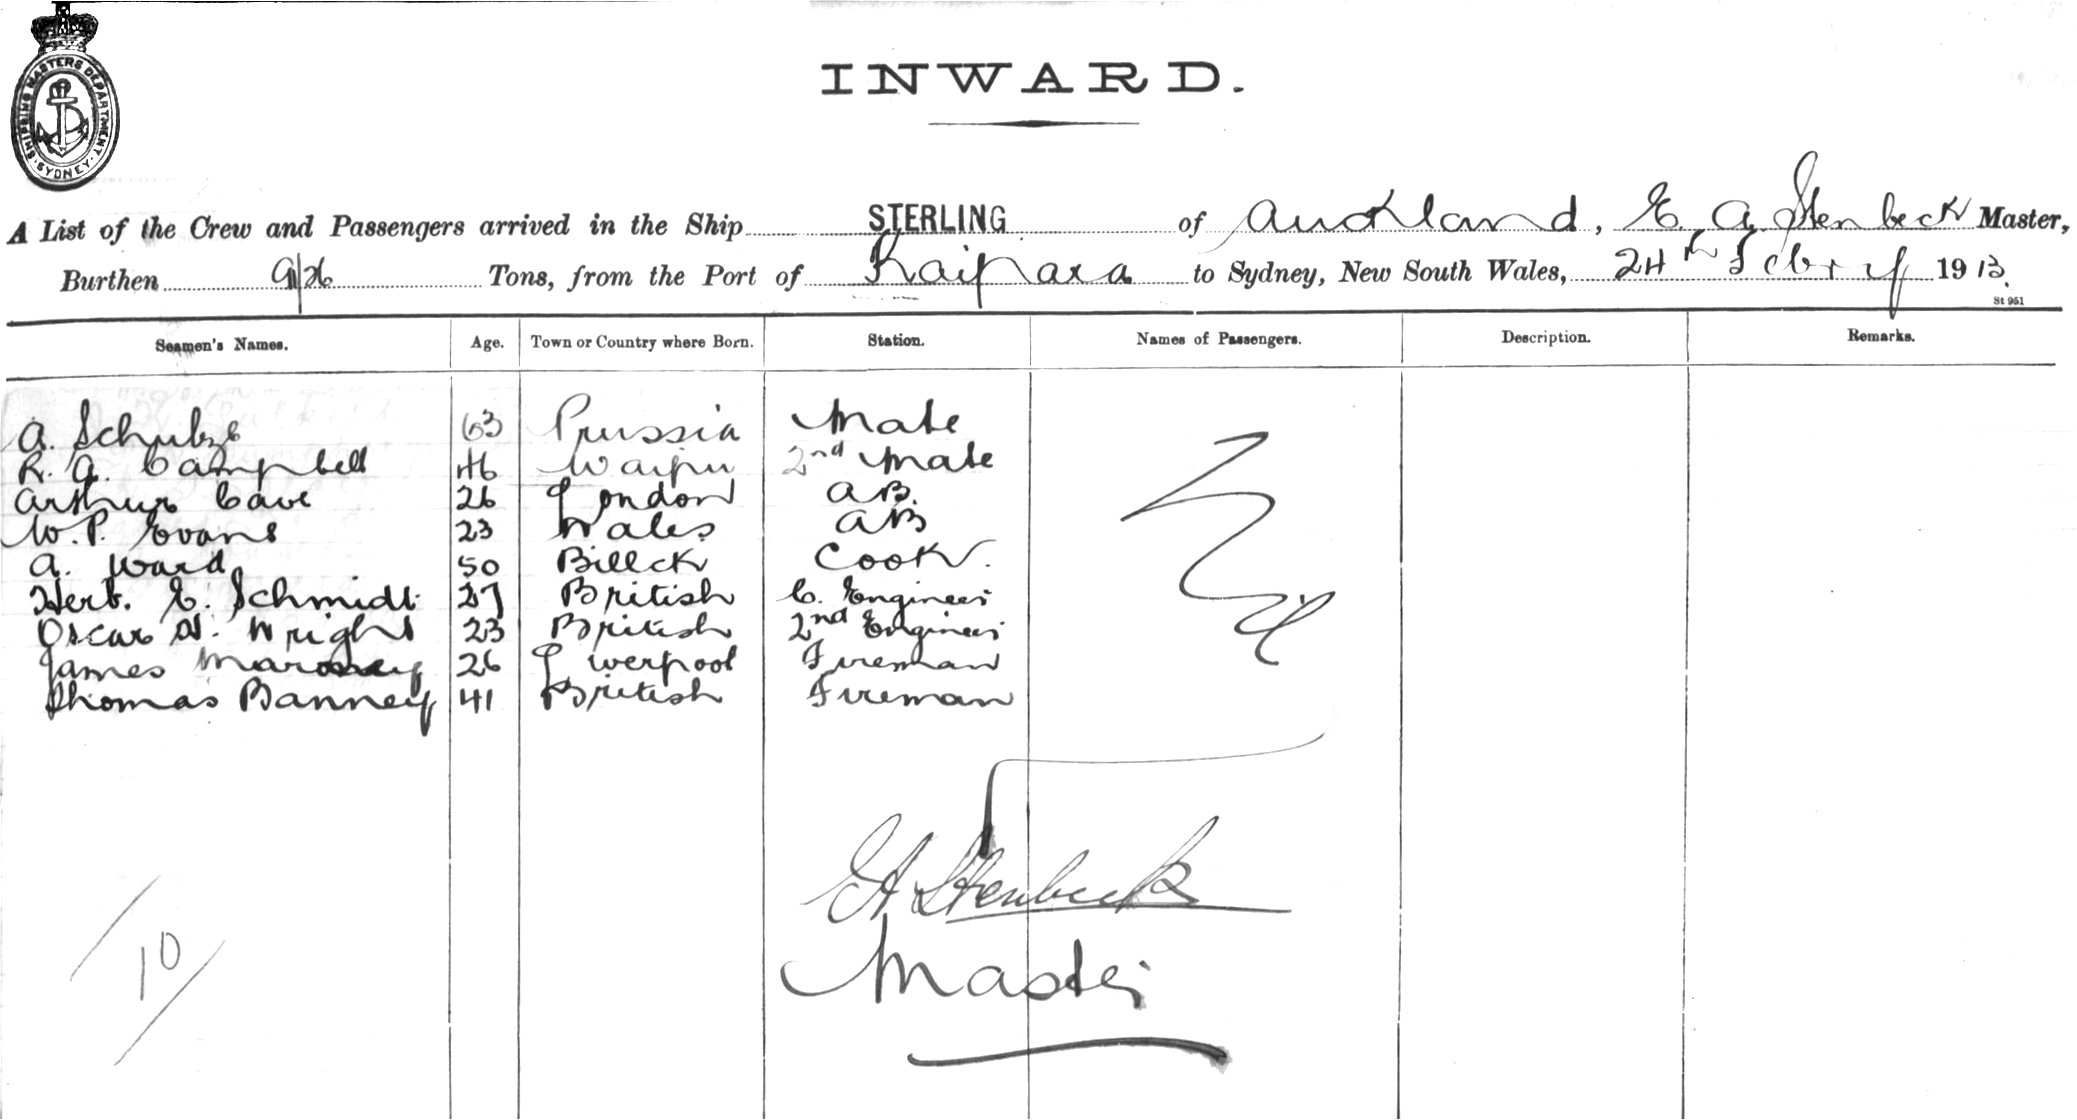 SHIPPING MASTERS DEPARTMENT. SYDNEY.
INWARD.
A List of the Crew and Passengers arrived in the Ship STERLING of Auckland, E. A. Stenbeck Master,
Burthen Tons, from the Port of Kaipara to Sydney, New South Wales, 24th Febry 1913.
St 951
Seamen's Names. Age. Town or Country where Born. Station. Names of Passengers. Description. Remarks.
A. Schulze 63 Prussia Mate
R. A. Campbell 46 Waipu 2nd Mate
Arthur Cave 26 London AB.
W. P. Evans 23 Wales AB
A. Ward 50 Cook.
Herb. E. Schmidt 27 British C. Engineer
Oscar W. Wright 23 British 2nd Engineer
James 26 Liverpool Fireman
Thomas Banney 41 British Fireman
Nil
EA Stenbeck
Master
10